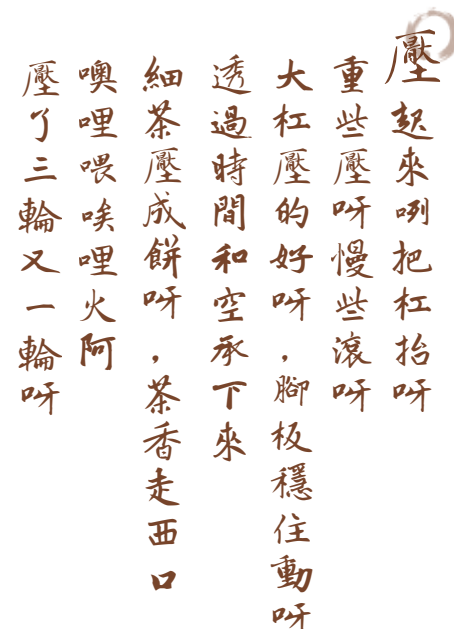 壓起來咧把杠抬呀
重些壓呀慢些滾呀
大杠壓的好呀，腳板穩住動呀
透過時間和空承下來
細茶壓成餅呀，茶香走西口
噢哩喂唉哩火阿
壓了三輪又一輪呀